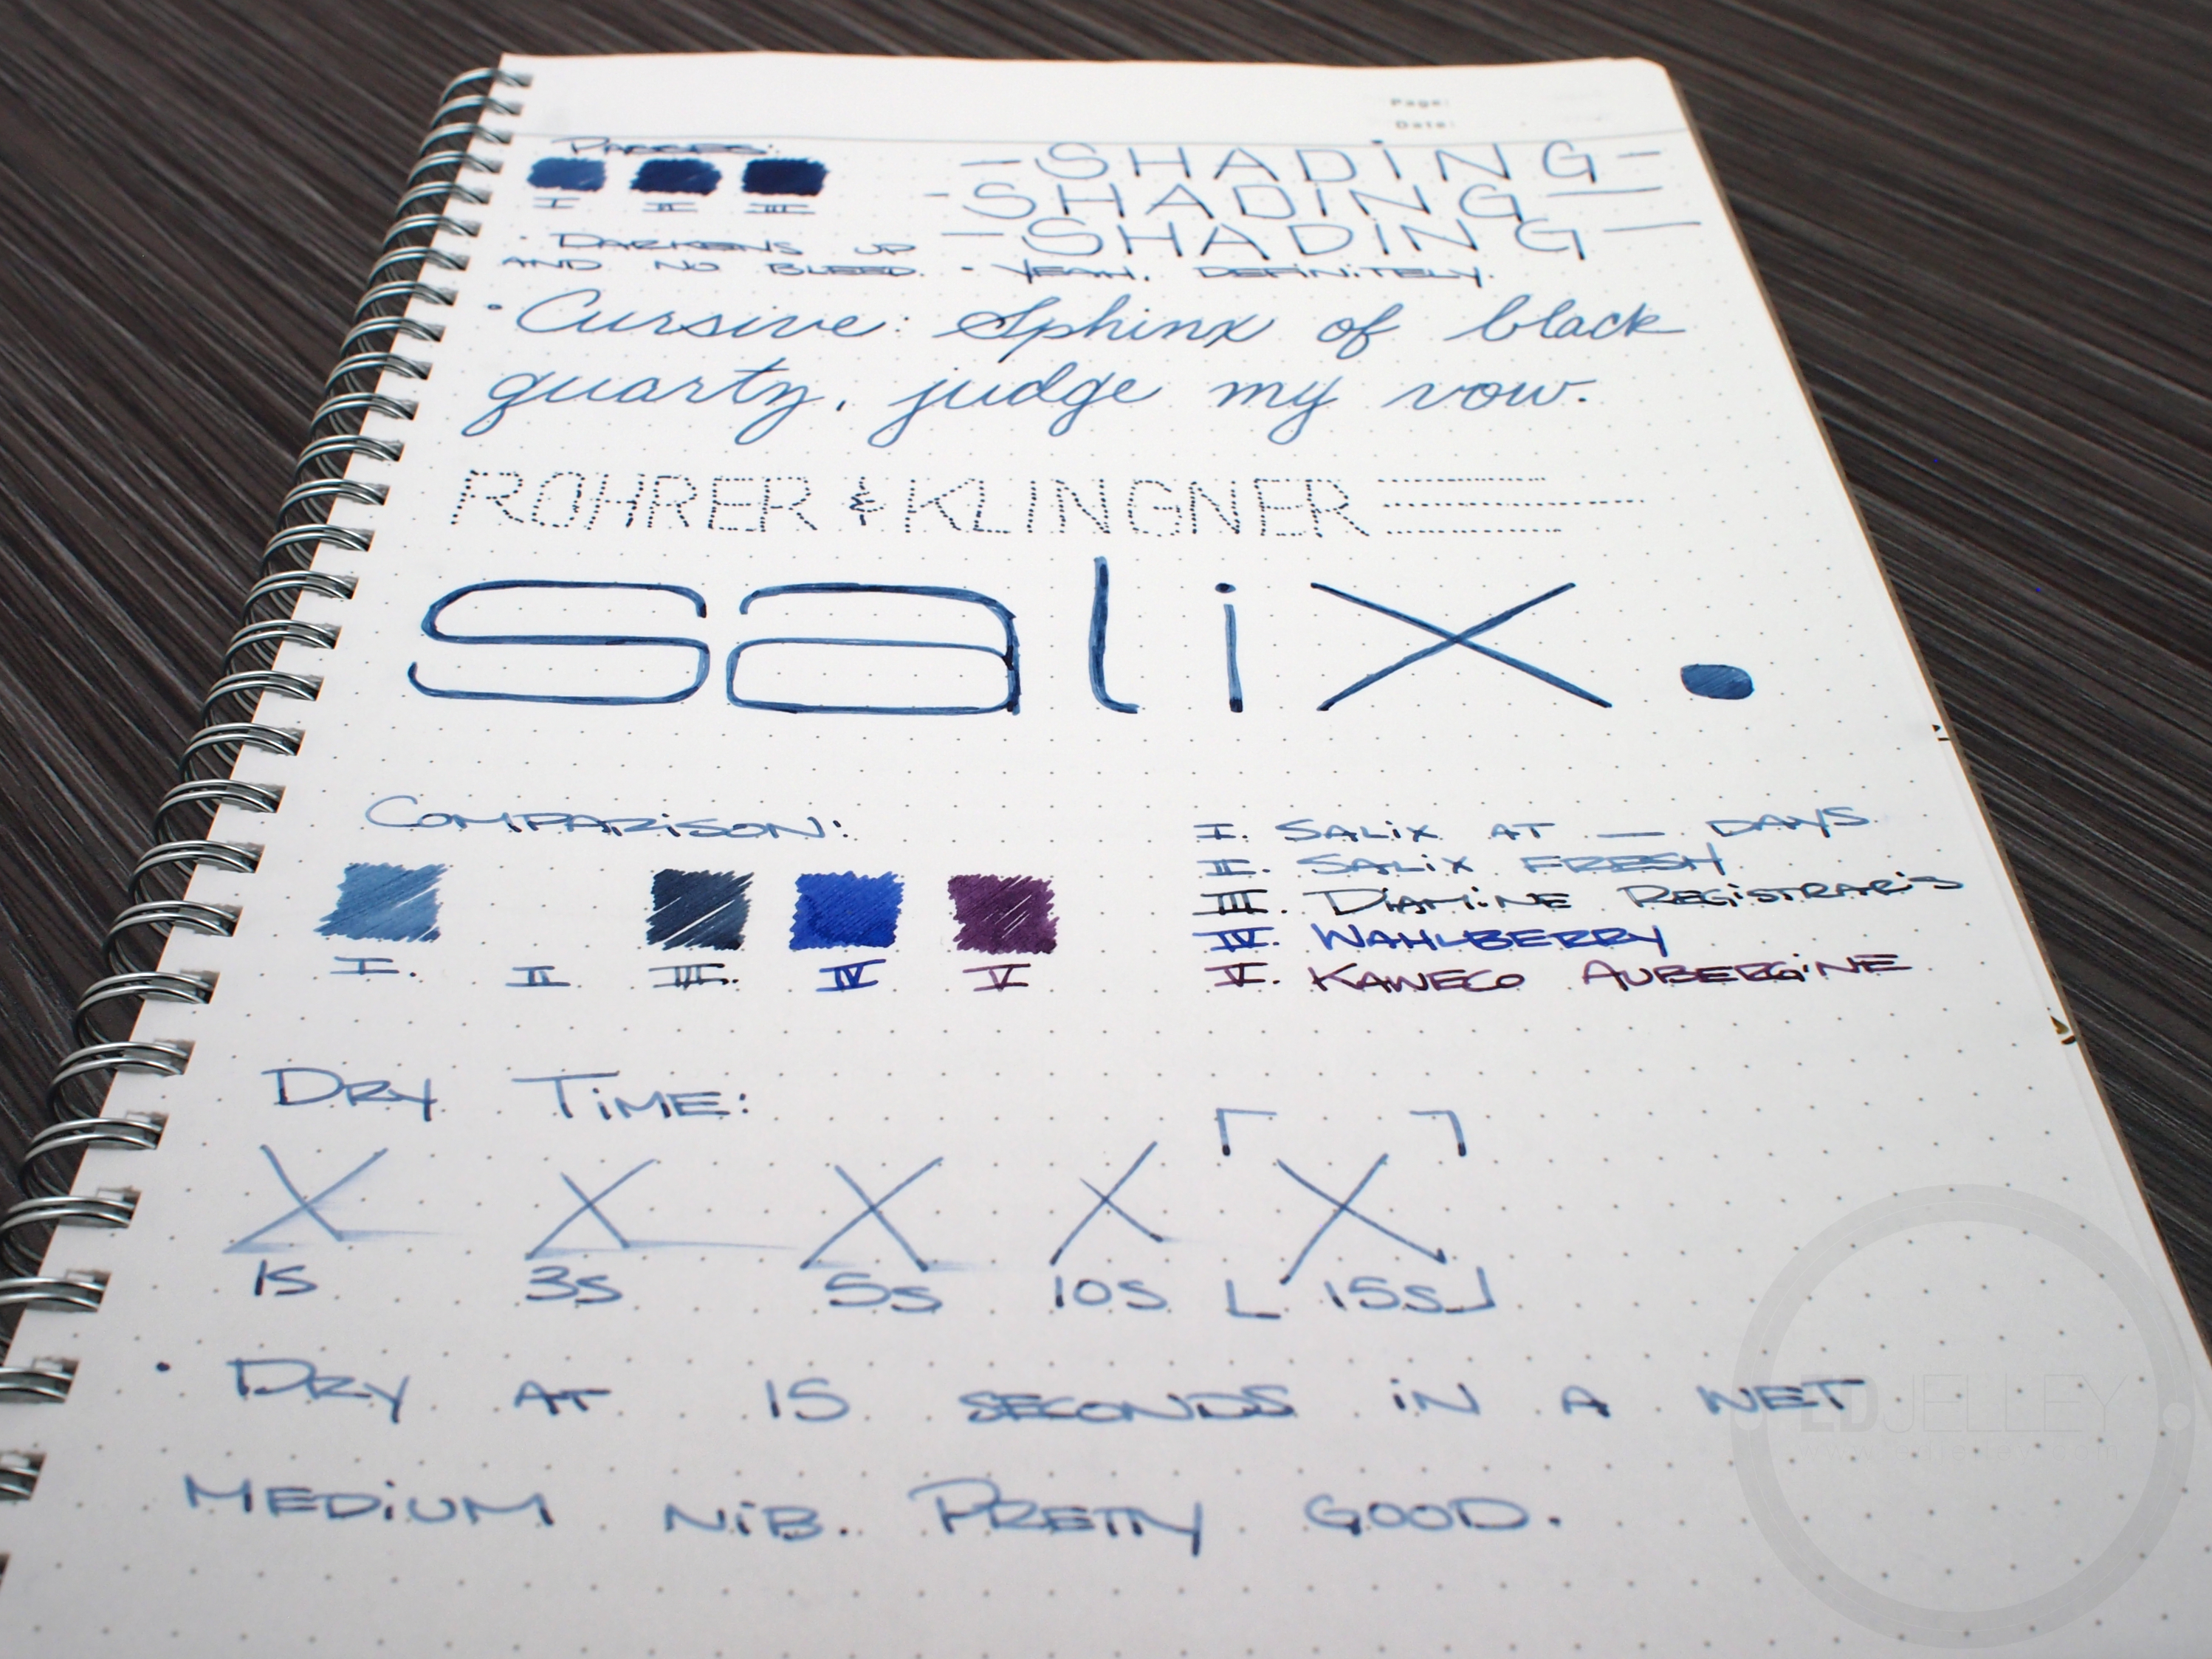 Page:
Date:
PASSES:
I II III
-SHADING-
-SHADING-
-SHADING-
· DARKENS UP
AND NO BLEED.
· YEAH, DEFINITELY.
· Cursive: Sphinx of black
quartz, judge my vow.
ROHRER & KLINGNER
salix.
COMPARISON:
I. II III. IV V
I. SALIX AT — DAYS
II. SALIX FRESH
III. DIAMINE REGISTRAR'S
IV. WAHLBERRY
V. KAWECO AUBERGINE
DRY TIME:
X X X X X
1S 3S 5S 10S 15S
· DRY AT 15 SECONDS IN A WET
MEDIUM NIB. PRETTY GOOD.
EDJELLEY